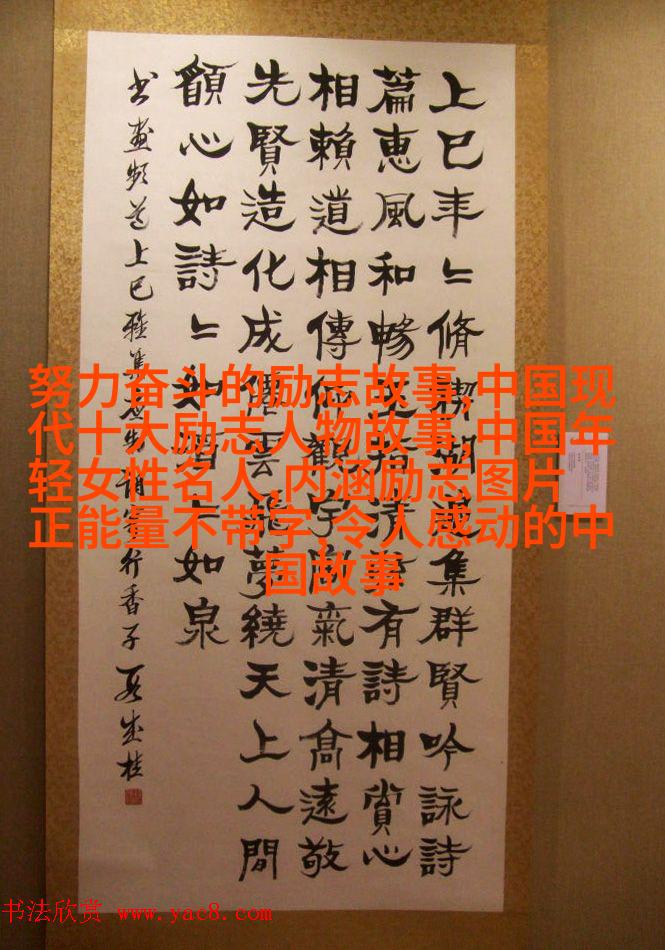 上巳年〻脩禊集群賢吟詠詩
篇惠風和暢清有詩相賞心
相賴道相傳觀氣清高遠敬
先賢造化成雲龍夢繞天上人間
願心如詩〻如酒〻如泉
书畫频道上巳雅集行香子
努力奋斗的励志故事,中国现
代十大励志人物故事,中国年
轻女性名人,内涵励志图片
正能量不带字,令人感动的中
国故事
书法欣赏 www.yac8.com